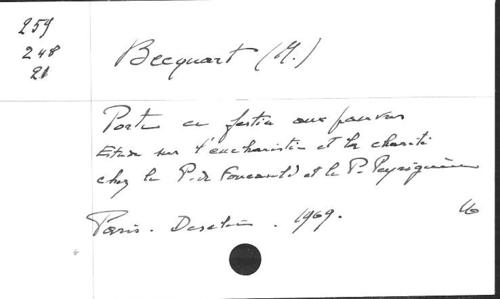 259
248
21
Becquart (M.)
Porte ce festin aux pauvres
Etude sur l'eucharistie et la charité
chez le P. de Foucauld et le P. Peyriguère
Paris. Desclée. 1969.